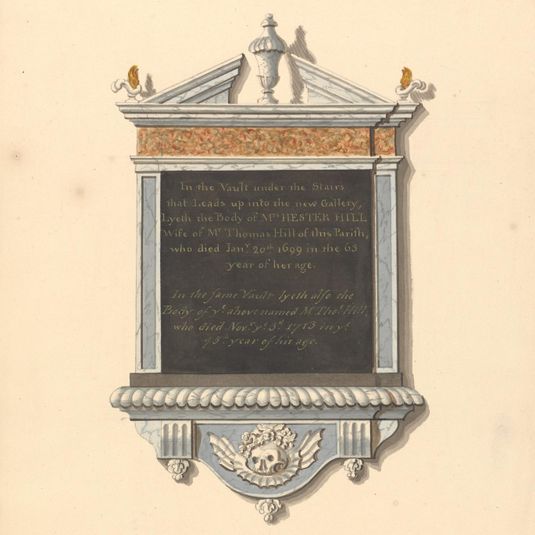 In the Vault under the Stairs
that Leads up into the new Gallery,
Lyeth the Body of Mrs HESTER HILL
Wife of Mr Thomas Hill of this Parish,
who died Janry 20th 1699 in the 63
year of her age.
In the same Vault lyeth also the
Body of ye above named Mr Thos Hill,
who died Novr ye 3d 1713 in ye
year of his age.